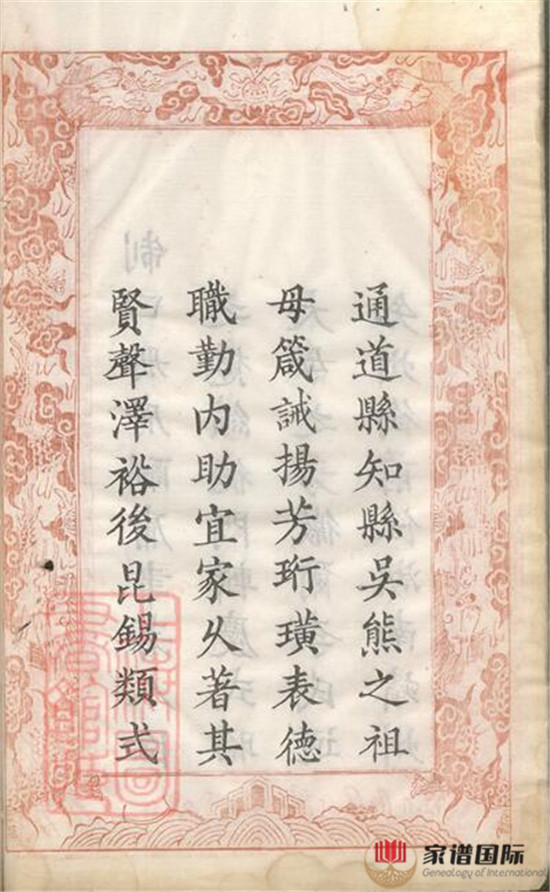 通道縣知縣吳熊之祖
母箴誡揚芳珩璜表德
職勤内助宜家乆著其
賢聲澤裕後昆錫類式
家谱国际
Genealogy of International